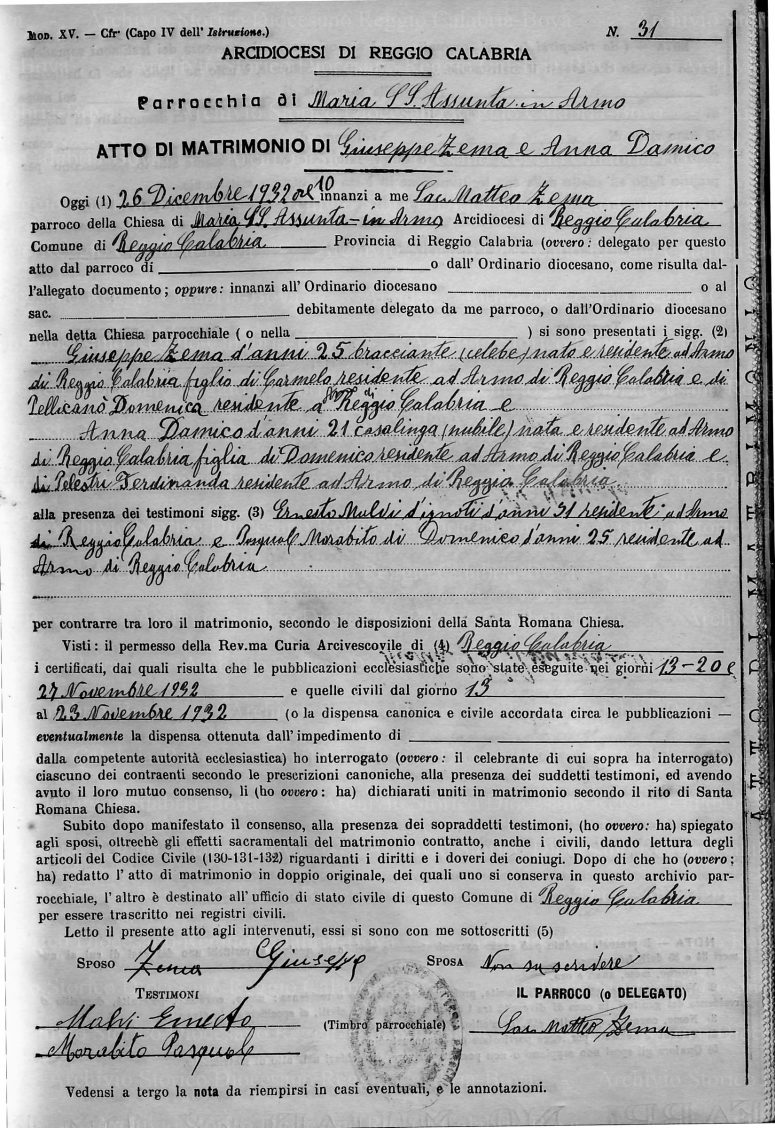 MOD. XV. — Cfr (Capo IV dell' Istruzione.) N. 31
ARCIDIOCESI DI REGGIO CALABRIA
Parrocchia di Maria SS. Assunta in Armo
ATTO DI MATRIMONIO DI Giuseppe Zema e Anna Damico
Oggi (1) 26 Dicembre 1932 ore 10 innanzi a me Sac. Matteo Zema
parroco della Chiesa di Maria SS. Assunta - in Armo Arcidiocesi di Reggio Calabria
Comune di Reggio Calabria Provincia di Reggio Calabria (ovvero: delegato per questo
atto dal parroco di o dall' Ordinario diocesano, come risulta dal-
l'allegato documento; oppure: innanzi all' Ordinario diocesano o al
sac. debitamente delegato da me parroco, o dall'Ordinario diocesano
nella detta Chiesa parrocchiale ( o nella ) si sono presentati i sigg. (2)
Giuseppe Zema d'anni 25 bracciante (celebe) nato e residente ad Armo
di Reggio Calabria figlio di Carmelo residente ad Armo di Reggio Calabria e di
Pellicanò Domenica residente a Armo di Reggio Calabria e
Anna Damico d'anni 21 casalinga (nubile) nata e residente ad Armo
di Reggio Calabria figlia di Domenico residente ad Armo di Reggio Calabria e
di Pelestri Ferdinanda residente ad Armo di Reggio Calabria
alla presenza dei testimoni sigg. (3) Ernesto d'ignoti d'anni 31 residente ad Armo
di Reggio Calabria e Pasquale Morabito di Domenico d'anni 25 residente ad
Armo di Reggio Calabria
per contrarre tra loro il matrimonio, secondo le disposizioni della Santa Romana Chiesa.
Visti: il permesso della Rev.ma Curia Arcivescovile di (4) Reggio Calabria
i certificati, dai quali risulta che le pubblicazioni ecclesiastiche sono state eseguite nei giorni 13-20 e
27 Novembre 1932 e quelle civili dal giorno 13
al 23 Novembre 1932 (o la dispensa canonica e civile accordata circa le pubblicazioni —
eventualmente la dispensa ottenuta dall'impedimento di
dalla competente autorità ecclesiastica) ho interrogato (ovvero: il celebrante di cui sopra ha interrogato)
ciascuno dei contraenti secondo le prescrizioni canoniche, alla presenza dei suddetti testimoni, ed avendo
avuto il loro mutuo consenso, li (ho ovvero: ha) dichiarati uniti in matrimonio secondo il rito di Santa
Romana Chiesa.
Subito dopo manifestato il consenso, alla presenza dei sopraddetti testimoni, (ho ovvero: ha) spiegato
agli sposi, oltrechè gli effetti sacramentali del matrimonio contratto, anche i civili, dando lettura degli
articoli del Codice Civile (130-131-132) riguardanti i diritti e i doveri dei coniugi. Dopo di che ho (ovvero;
ha) redatto l' atto di matrimonio in doppio originale, dei quali uno si conserva in questo archivio par-
rocchiale, l' altro è destinato all' ufficio di stato civile di questo Comune di Reggio Calabria
per essere trascritto nei registri civili.
Letto il presente atto agli intervenuti, essi si sono con me sottoscritti (5)
SPOSO Zema Giuseppe SPOSA Non sa scrivere
TESTIMONI IL PARROCO (o DELEGATO)
Malvi Ernesto (Timbro parrocchiale) Sac. Matteo Zema
Morabito Pasquale
Vedensi a tergo la nota da riempirsi in casi eventuali, e le annotazioni.